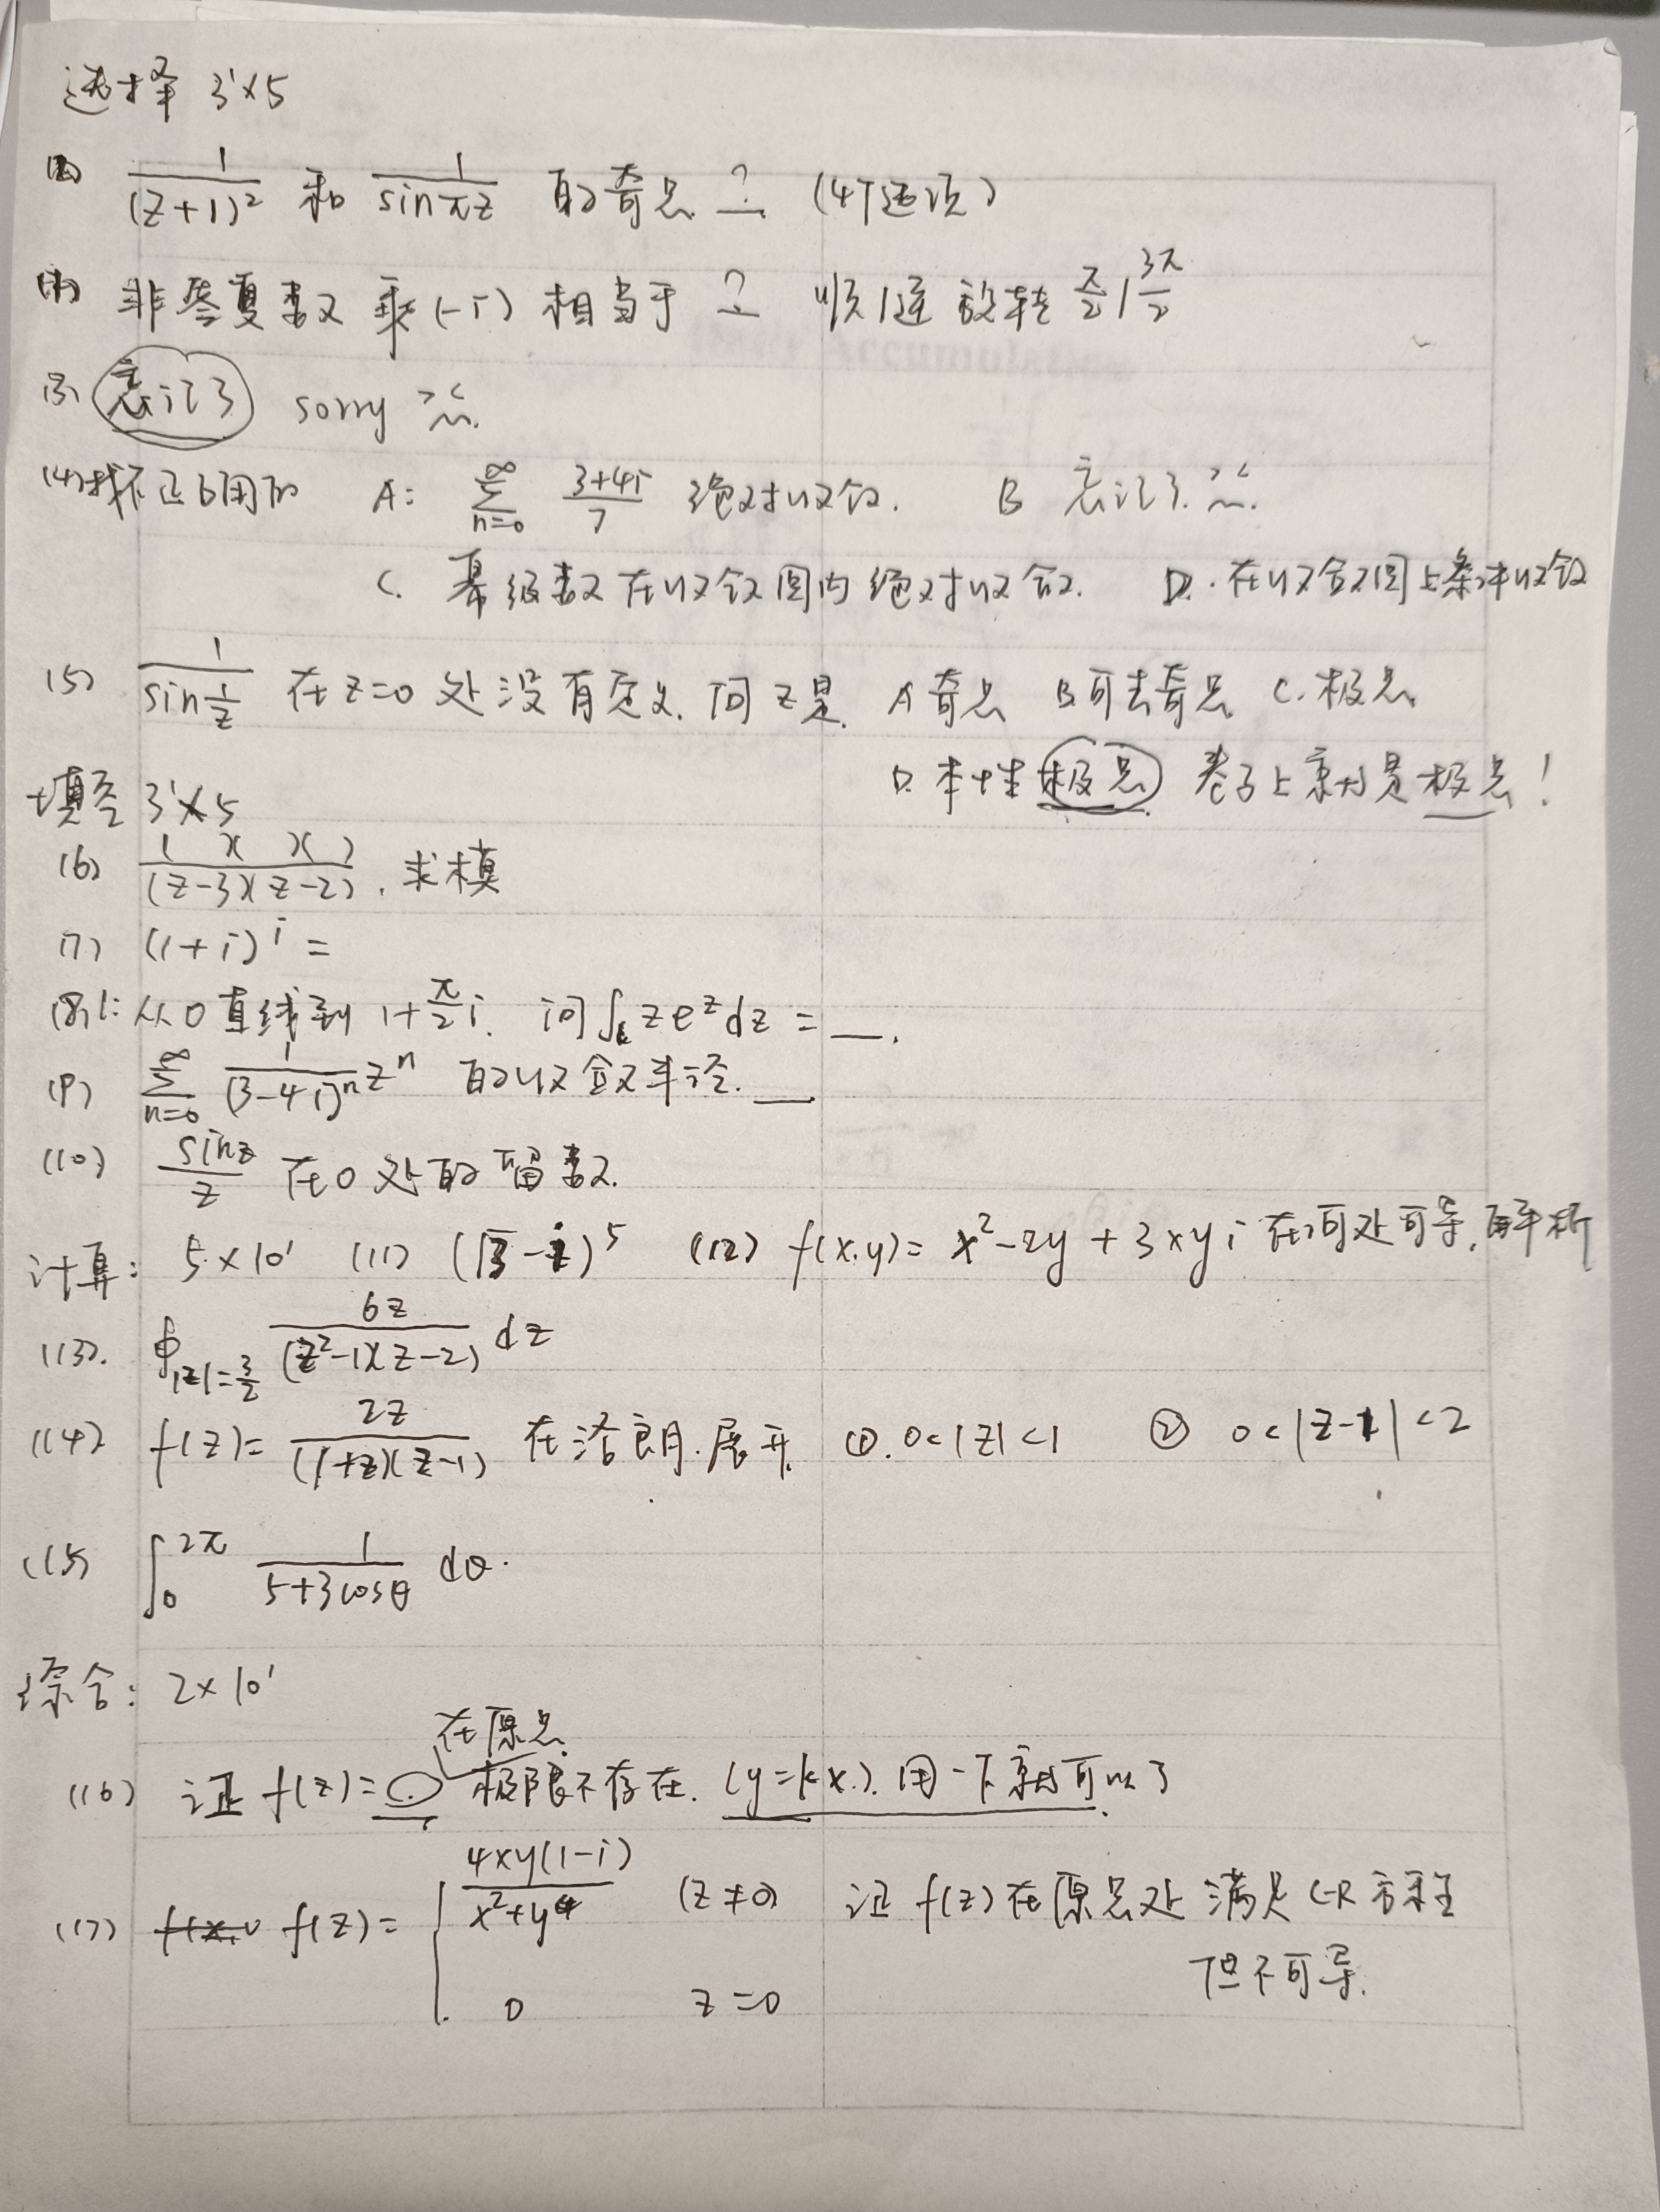 选择 3'×5
(1) 1/(z+1)² 和 1/sinπz 的奇点 ? (4个选项)
(2) 非零复数 乘(-i) 相当于 ? 顺/逆 旋转 π/2 / 3π/2
(3) 忘记了 sorry
(4) 找不正确的 A: ∑_{n=0}^{∞} (3+4i)/7 绝对收敛. B 忘记了.
C. 幂级数在收敛圆内绝对收敛. D. 在收敛圆上条件收敛
(5) 1/sin(1/z) 在z=0处没有定义.问z是. A 奇点 B 可去奇点 C. 极点
D. 本性极点 卷子上就是极点!
填空 3'×5
(6) ( )( )( )/(z-3)(z-2) . 求模
(7) (1+i)^i =
(8) L: 从0直线到 1+π/2 i. 问∫_L ze^z dz = __.
(9) ∑_{n=0}^{∞} 1/(3-4i)^n z^n 的收敛半径. __
(10) sinz/z 在0处的留数.
计算: 5×10' (11) (√3-i)^5 (12) f(x.y)= x²-2y+3xyi 在何处可导.解析
(13). ∮_{|z|=3/2} 6z/(z²-1)(z-2) dz
(14) f(z)= 2z/(1+z)(z-1) 在洛朗.展开. ①. 0<|z|<1 ② 0<|z-1|<2
(15) ∫_0^{2π} 1/(5+3cosθ) dθ.
综合: 2×10'
在原点
(16) 证 f(z)= 极限不存在. (y=kx.). 用一下就可以了
(17) f(z)= { 4xy(1-i)/(x²+y⁴) (z≠0) 证 f(z)在原点处满足C-R方程
但不可导.
0 z=0